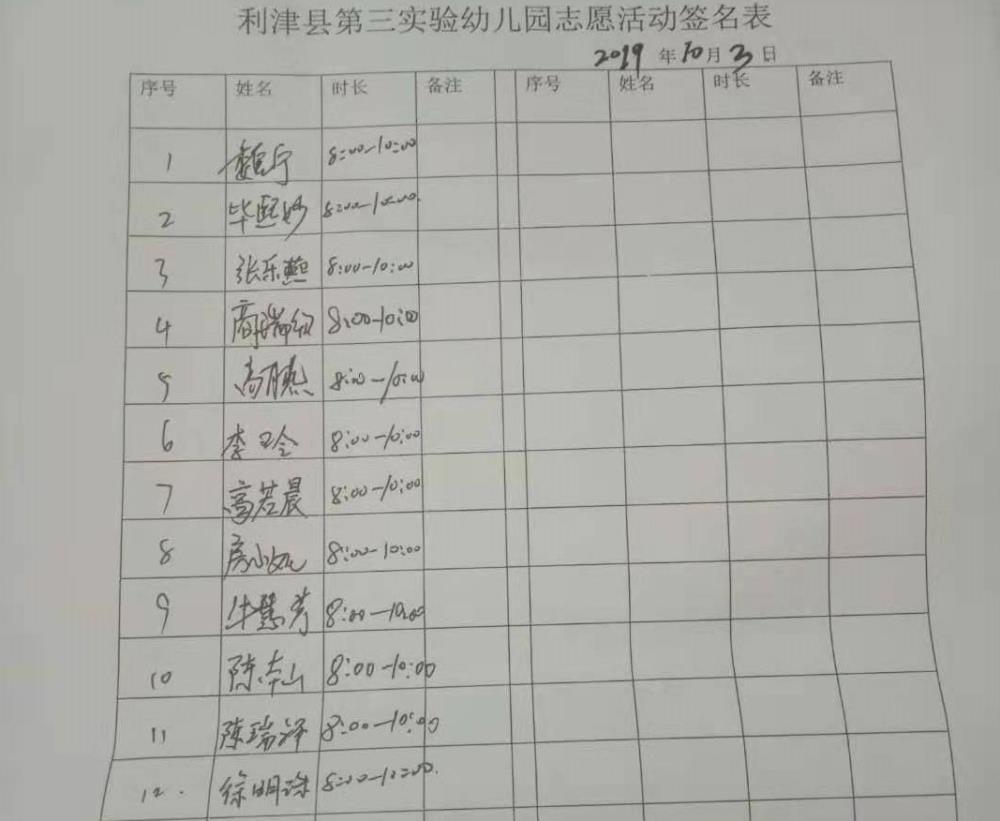 利津县第三实验幼儿园志愿活动签名表
2019 年 10 月 3 日
序号 姓名 时长 备注 序号 姓名 时长 备注
1 魏宁 8:00-10:00
2 毕熙妙 8:00-10:00
3 张乐燕 8:00-10:00
4 8:00-10:00
5 8:00-10:00
6 李卫令 8:00-10:00
7 高若晨 8:00-10:00
8 8:00-10:00
9 牛慧芳 8:00-10:00
10 陈本山 8:00-10:00
11 陈瑞泽 8:00-10:00
12. 徐明琮 8:00-10:00.